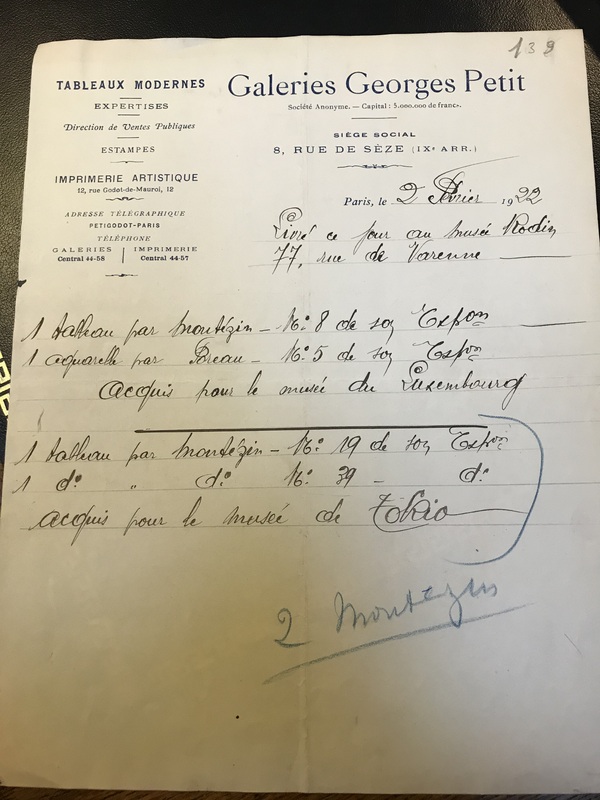 139
TABLEAUX MODERNES
EXPERTISES
Direction de Ventes Publiques
ESTAMPES
IMPRIMERIE ARTISTIQUE
12, rue Godot-de-Mauroi, 12
ADRESSE TÉLÉGRAPHIQUE
PETIGODOT-PARIS
TÉLÉPHONE
GALERIES | IMPRIMERIE
Central 44-58 | Central 44-57
Galeries Georges Petit
Société Anonyme. — Capital : 5.000.000 de francs.
SIÈGE SOCIAL
8, RUE DE SÈZE (IXe ARR.)
Paris, le 2 Février 1922
Livré ce jour au musée Rodin
77, rue de Varenne —
1 tableau par Montézin — No. 8 de son Expon —
1 aquarelle par — No. 5 de son Expon
acquis pour le musée du Luxembourg
1 tableau par Montézin — No. 19 de son Expon
1 do. " do. No. 39 — do.
acquis pour le musée de Tokio
2 Montézin